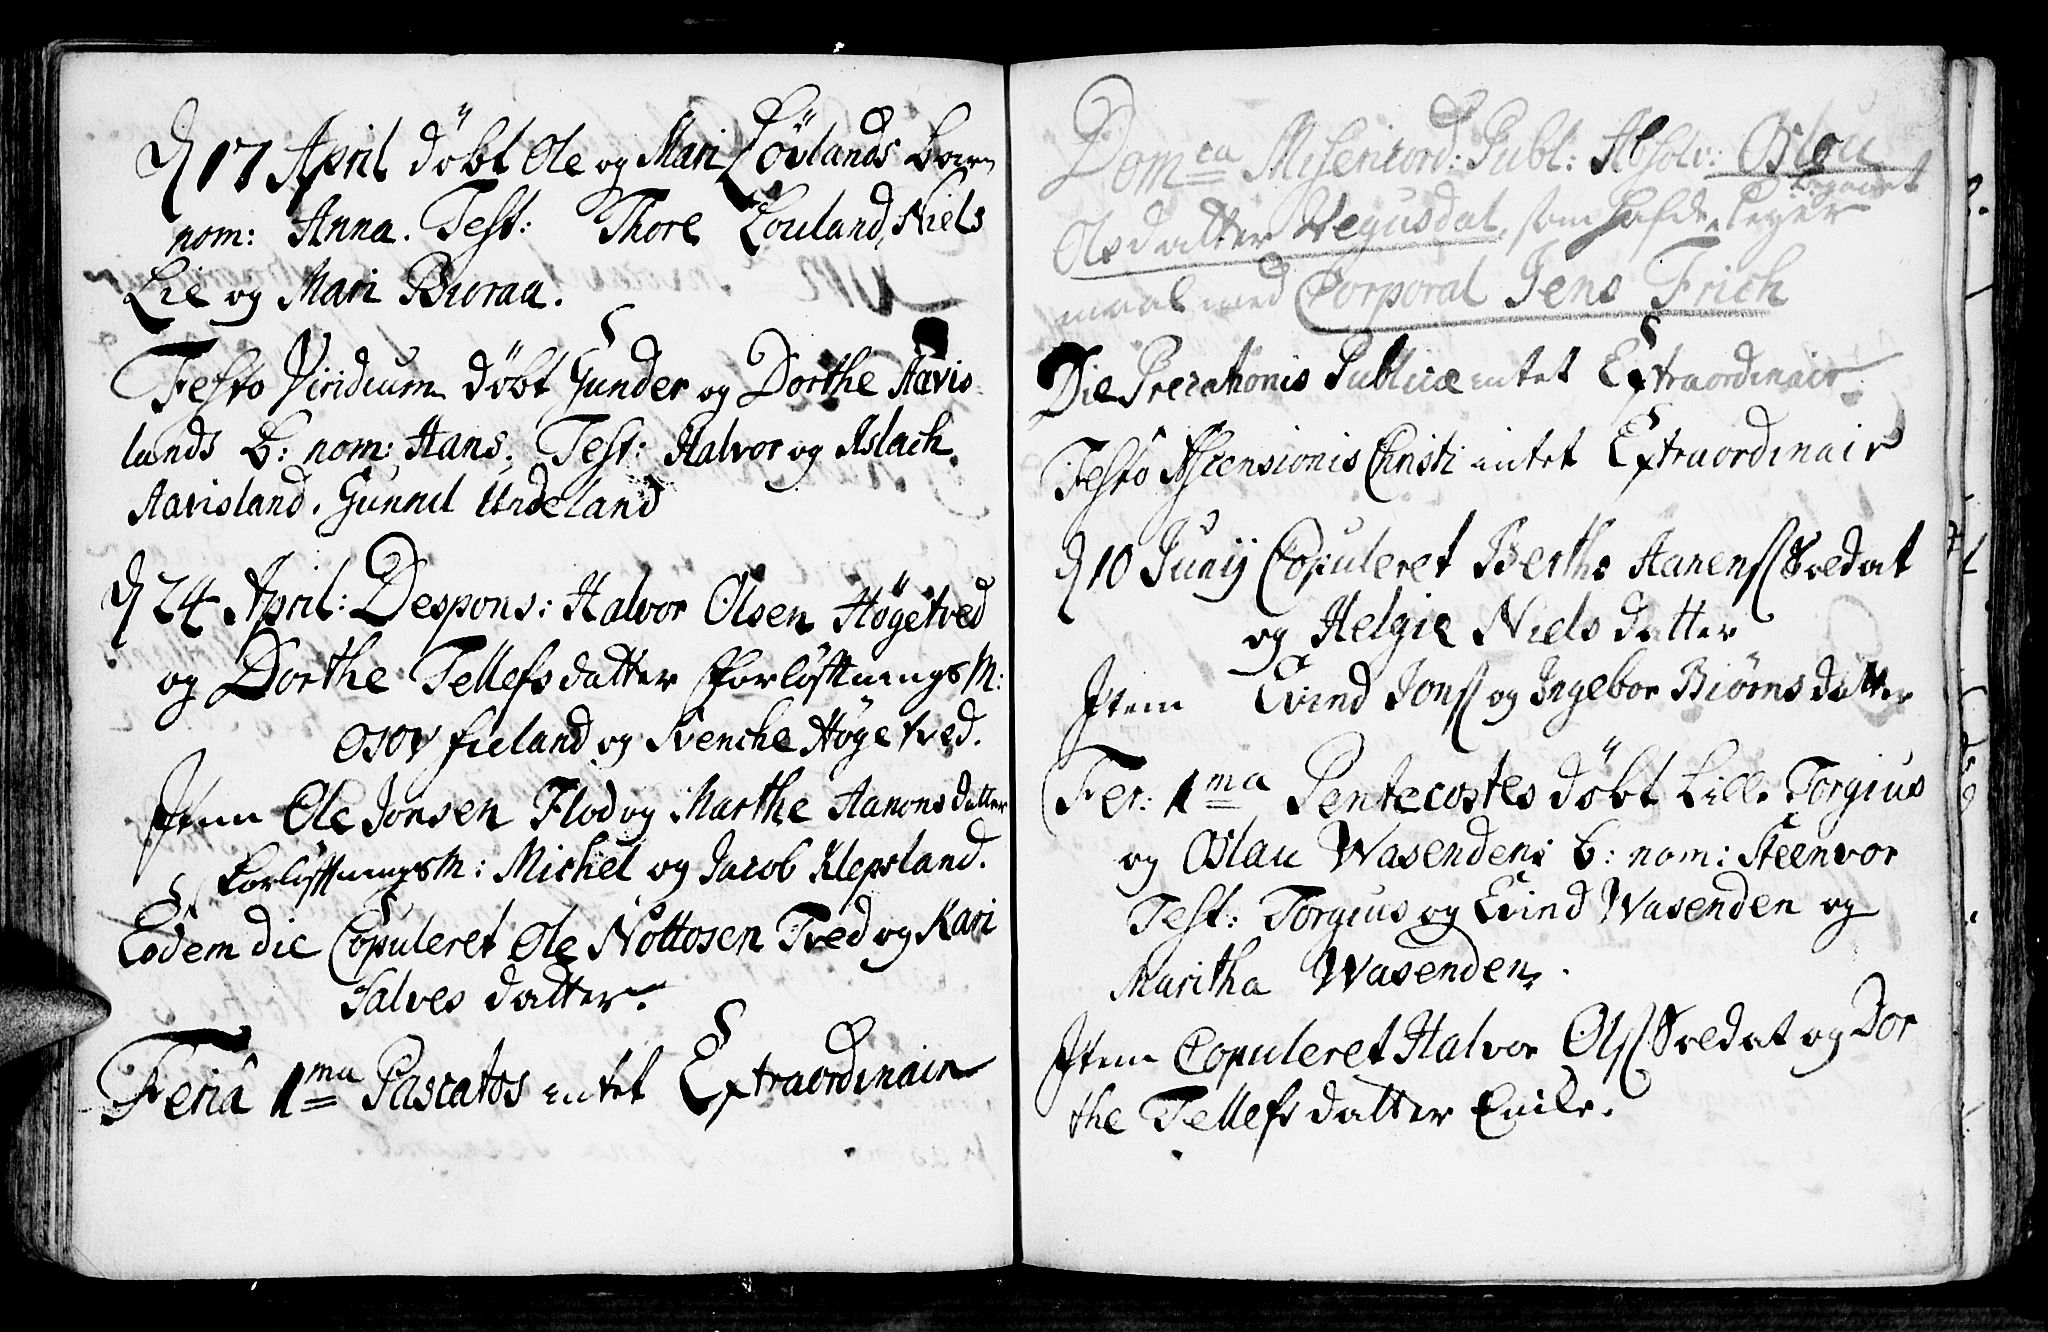 D 17 April döbt Ole og Mari Lövlands Barn
nom: Anna. Test: Thore Louland, Niels
Lie og Mari Buraa.
Festo Viridium döbt Gunder og Dorthe Aavis
lands B: nom: Hans. Test: Halvor og Aslach
Aavisland. Gunnil Undeland
D 24 April: Despons: Halvor Olsen Högetved
og Dorthe Tellefsdatter Forlöftnings M:
Osov fieland og Svenche Högetved.
Item Ole Jonsen Flod og Marthe Aanonsdatter
Forlöftnings M: Michel og Jacob Klepsland.
Eodem die Copuleret Ole Nottosen Tved og Kari
Salves datter.
Feriâ 1ma Pascatos intet Extraordinair
Domca Misericord: Publ: Absolv: Oslou
Olsdatter Vegusdal, som hafde begaaet Leyer
maal med Corporal Jens Frich
Die Precationis Publicæ intet Extraordinair
Festo Ascensionis Christi intet Extraordinair
D 10 Junij Copuleret Berthe Aanens Soldat
og Helgie Nielsdatter
Item Evind Jons og Ingebor Biörnsdatter
Fer: 1ma Pentecostes döbt Lille Torgius
og Oslau Wasendens b: nom: Steenvor
Test: Torgius og Evind Wasenden og
Maritha Wasenden.
Item Copuleret Halvor Ols Soldat og Dor
the Tellefsdatter